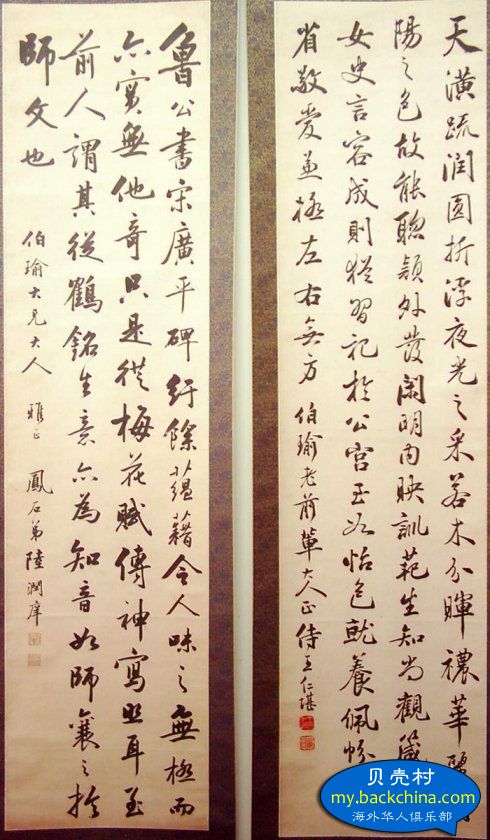 天潢疏润圓折浮夜光之采若木分暉穠華
陽之色故能聰穎外發閑明内映訓範生知尚觀箴
女史言容成則猶習記於公宫至如怡色就養佩帉
省敬愛兼極左右無方 伯瑜老前輩大人正 侍王仁堪
魯公書宋廣平碑紆餘蕴藉令人味之無極而
亦實無他奇只是從梅花賦傳神寫照耳至
前人謂其從鶴銘生意亦為知音如師襄之於
師文也 伯瑜大兄大人 雅正 鳳石弟陸潤庠
贝壳村
my.backchina.com
海外华人俱乐部